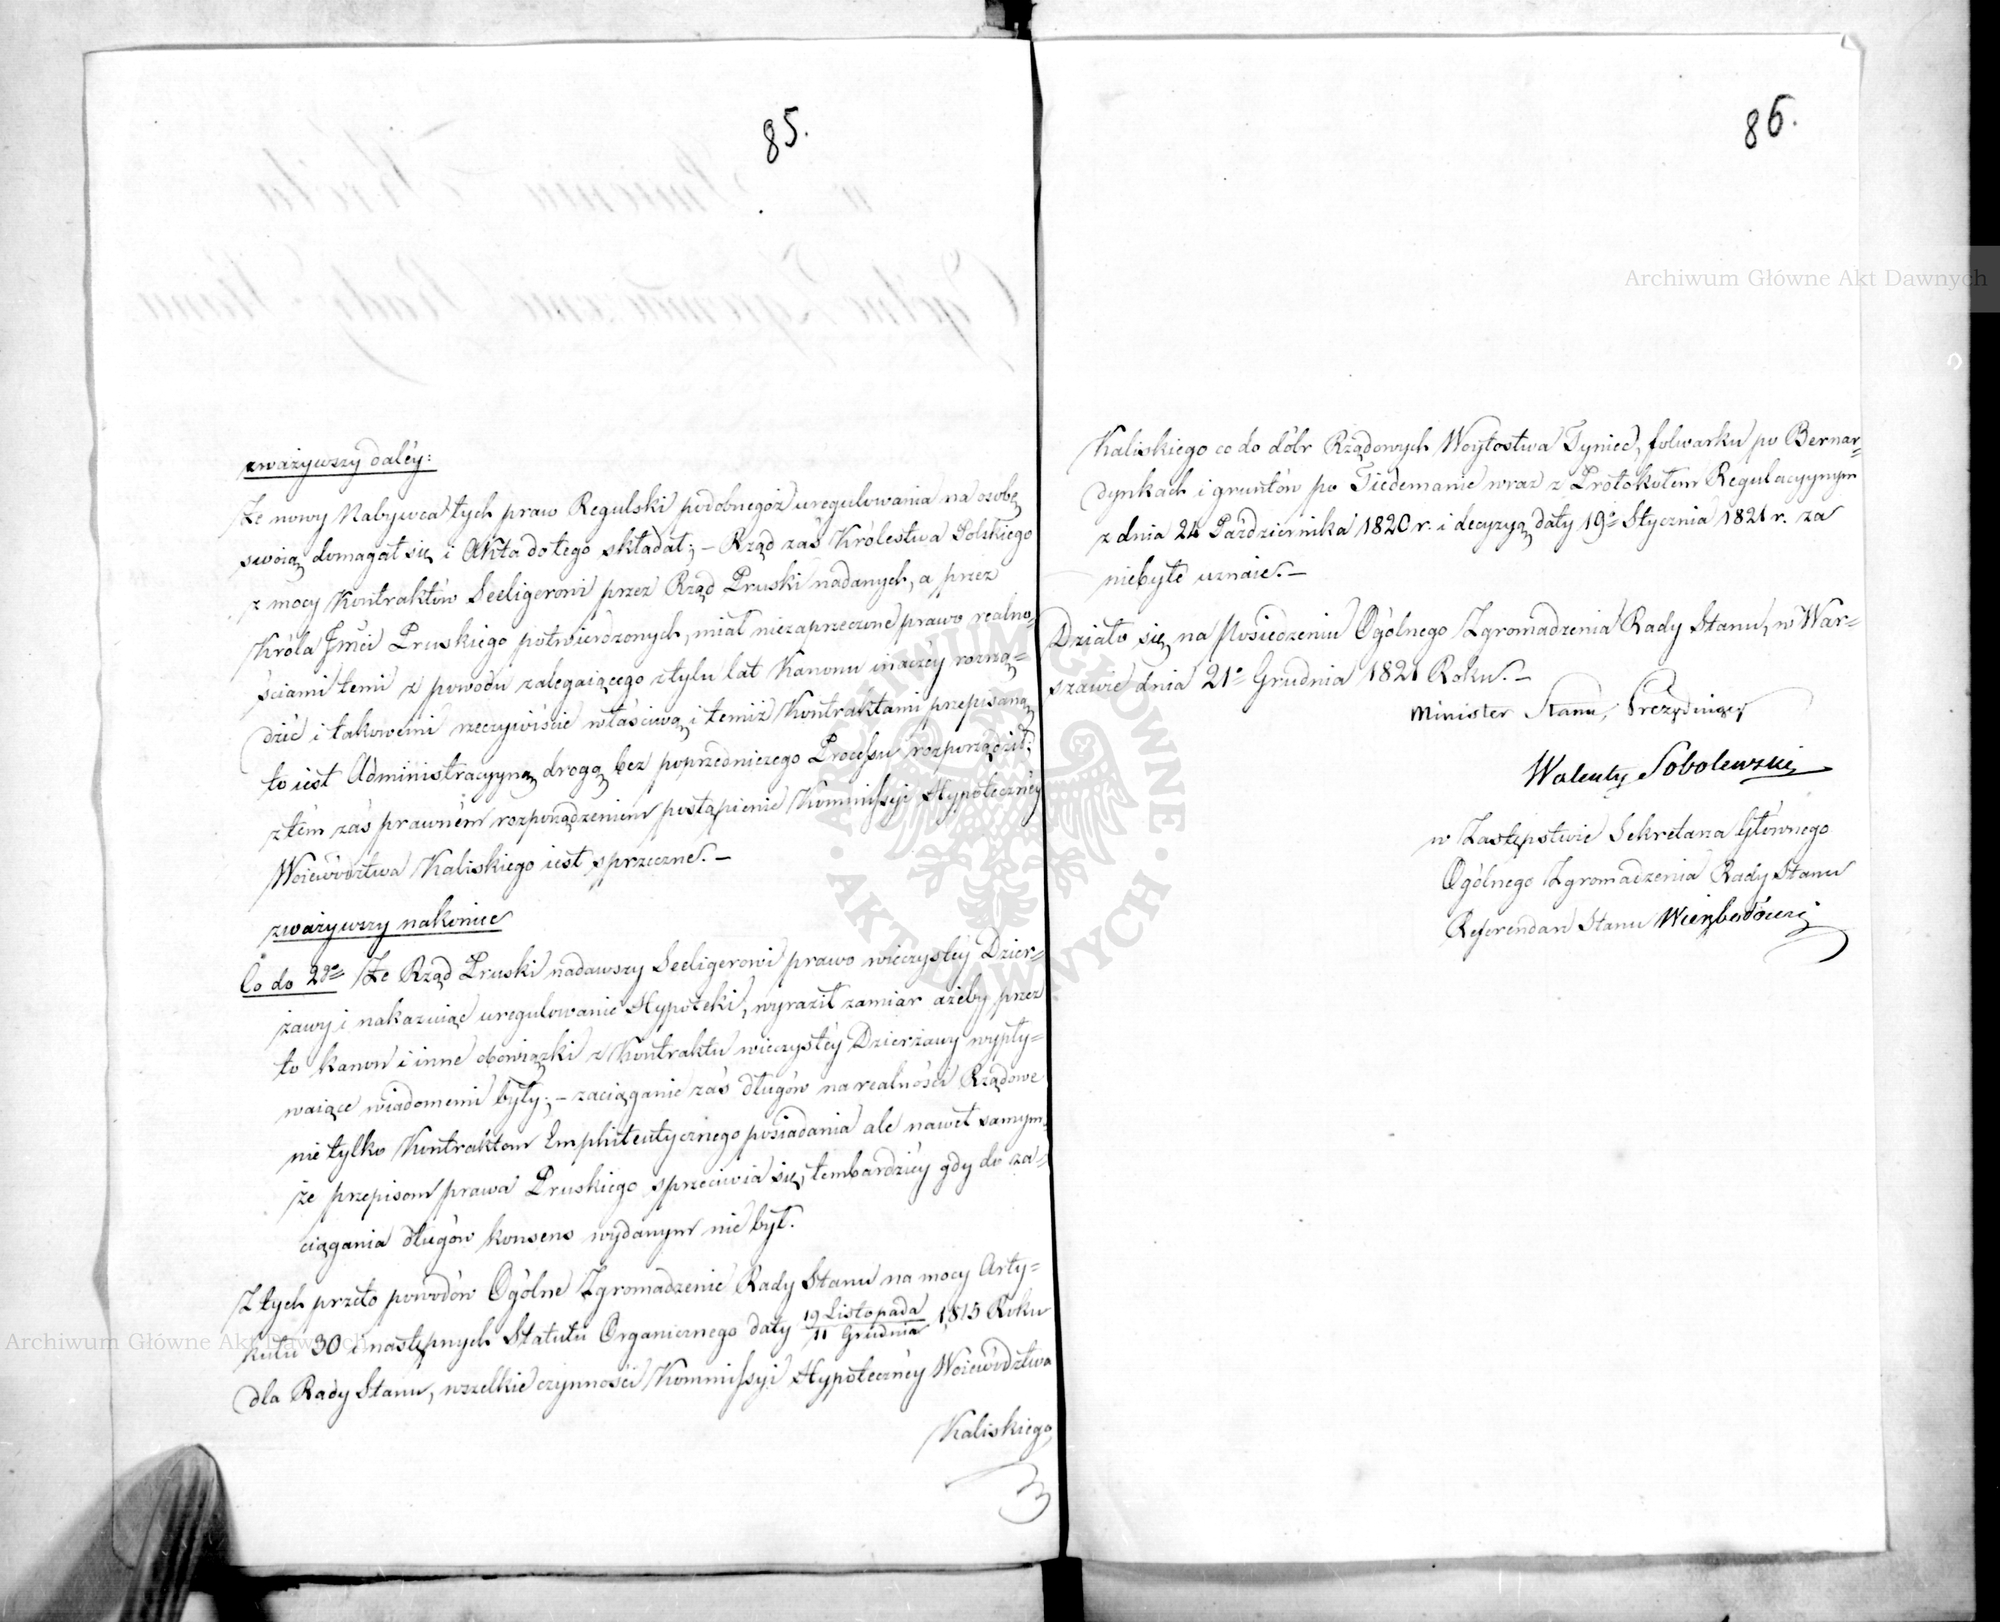 85.
zważywszy daléy:
Że nowy Nabywca tych praw Regulski podobnegoż uregulowania na osobę
swoią domagał się i Akta do tego składał; – Rząd zaś Królestwa Polskiego
z mocy Kontraktów Seeligerowi przez Rząd Pruski nadanych, a przez
Króla Jmci Pruskiego potwierdzonych, miał niezaprzeczone prawo realno-
ściami temi z powodu zalegaiącego z tylu lat Kanonu inaczéy rozrzą-
dzić i takowemi rzeczywiście właściwą i temiż Kontraktami przepisaną
to iest Administracyyną drogą bez poprzedniczego Processu rozporządził;
z tém zaś prawném rozporządzeniem postąpienie Kommissyi Hypoteczney
Woiewództwa Kaliskiego iest sprzeczne. –
zważywszy nakoniec
Co do 2go Że Rząd Pruski nadawszy Seeligerowi prawo wieczystéy Dzier-
żawy i nakazuiąc uregulowanie Hypoteki, wyraził zamiar ażeby przez
to kanon i inne obowiązki z Kontraktu wieczystéy Dzierżawy wypły-
waiące wiadomemi były; – zaciąganie zaś długów na realności Rządowe
nie tylko Kontraktom Emphiteutycznego posiadania ale nawet samym-
że przepisom prawa Pruskiego sprzeciwia się, tembardziéy gdy do za-
ciągania długów konsens wydanym nie był.
Z tych przeto powodów Ogólne Zgromadzenie Rady Stanu na mocy Arty-
kułu 30 i następnych Statutu Organicznego daty 19 Listopada / 11 Grudnia 1815 Roku
dla Rady Stanu, wszelkie czynności Kommissyi Hypotecznéy Woiewództwa
Kaliskiego
86.
Kaliskiego co do dóbr Rządowych Woytostwa Tyniec, folwarku po Bernar-
dynkach i gruntów po Tiedemanie wraz z Protokołem Regulacyynym
z dnia 24 Października 1820 r. i decyzyą daty 19o Stycznia 1821 r. za
niebyłe uznaie. –
Działo się na Posiedzeniu Ogólnego Zgromadzenia Rady Stanu, w War-
szawie dnia 21o Grudnia 1821 Roku. –
Minister Stanu, Prezyduiący
Walenty Sobolewski
w Zastępstwie Sekretarza Głównego
Ogólnego Zgromadzenia Rady Stanu
Referendarz Stanu
Archiwum Główne Akt Dawnych
Archiwum Główne Akt Dawnych
ARCHIWUM GŁÓWNE · AKT DAWNYCH ·